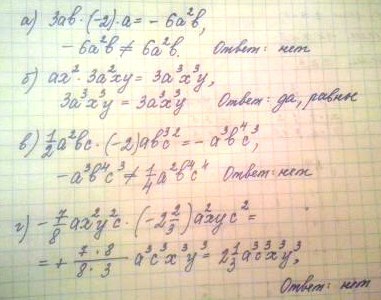 а) 3ab·(-2)·a = - 6a²b,
- 6a²b ≠ 6a²b. Ответ: нет
б) ax²·3a²xy = 3a³x³y,
3a³x³y = 3a³x³y Ответ: да, равны
в) 1/2 a²bc·(-2)ab³c² = - a³b⁴c³,
- a³b⁴c³ ≠ 1/4 a²b⁴c⁴ Ответ: нет
г) - 7/8 ax²y²c·(-2 2/3) a²xyc² =
= + 7·8/8·3 a³c³x³y³ = 2 1/3 a³c³x³y³,
Ответ: нет